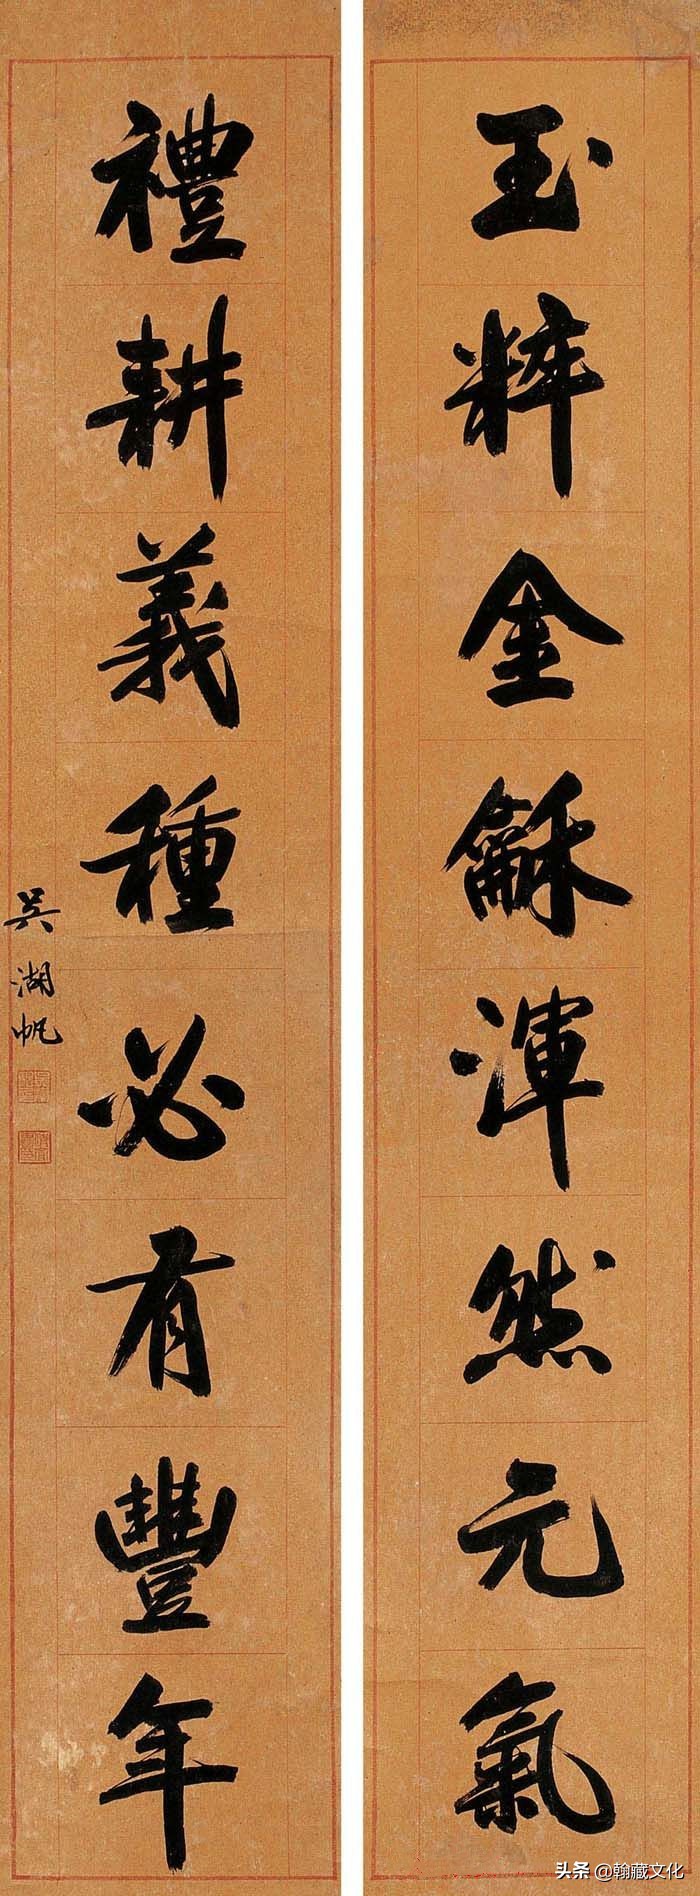 玉粹金龢渾然元氣
禮耕義種必有豐年
吳湖帆
头条 @翰藏文化